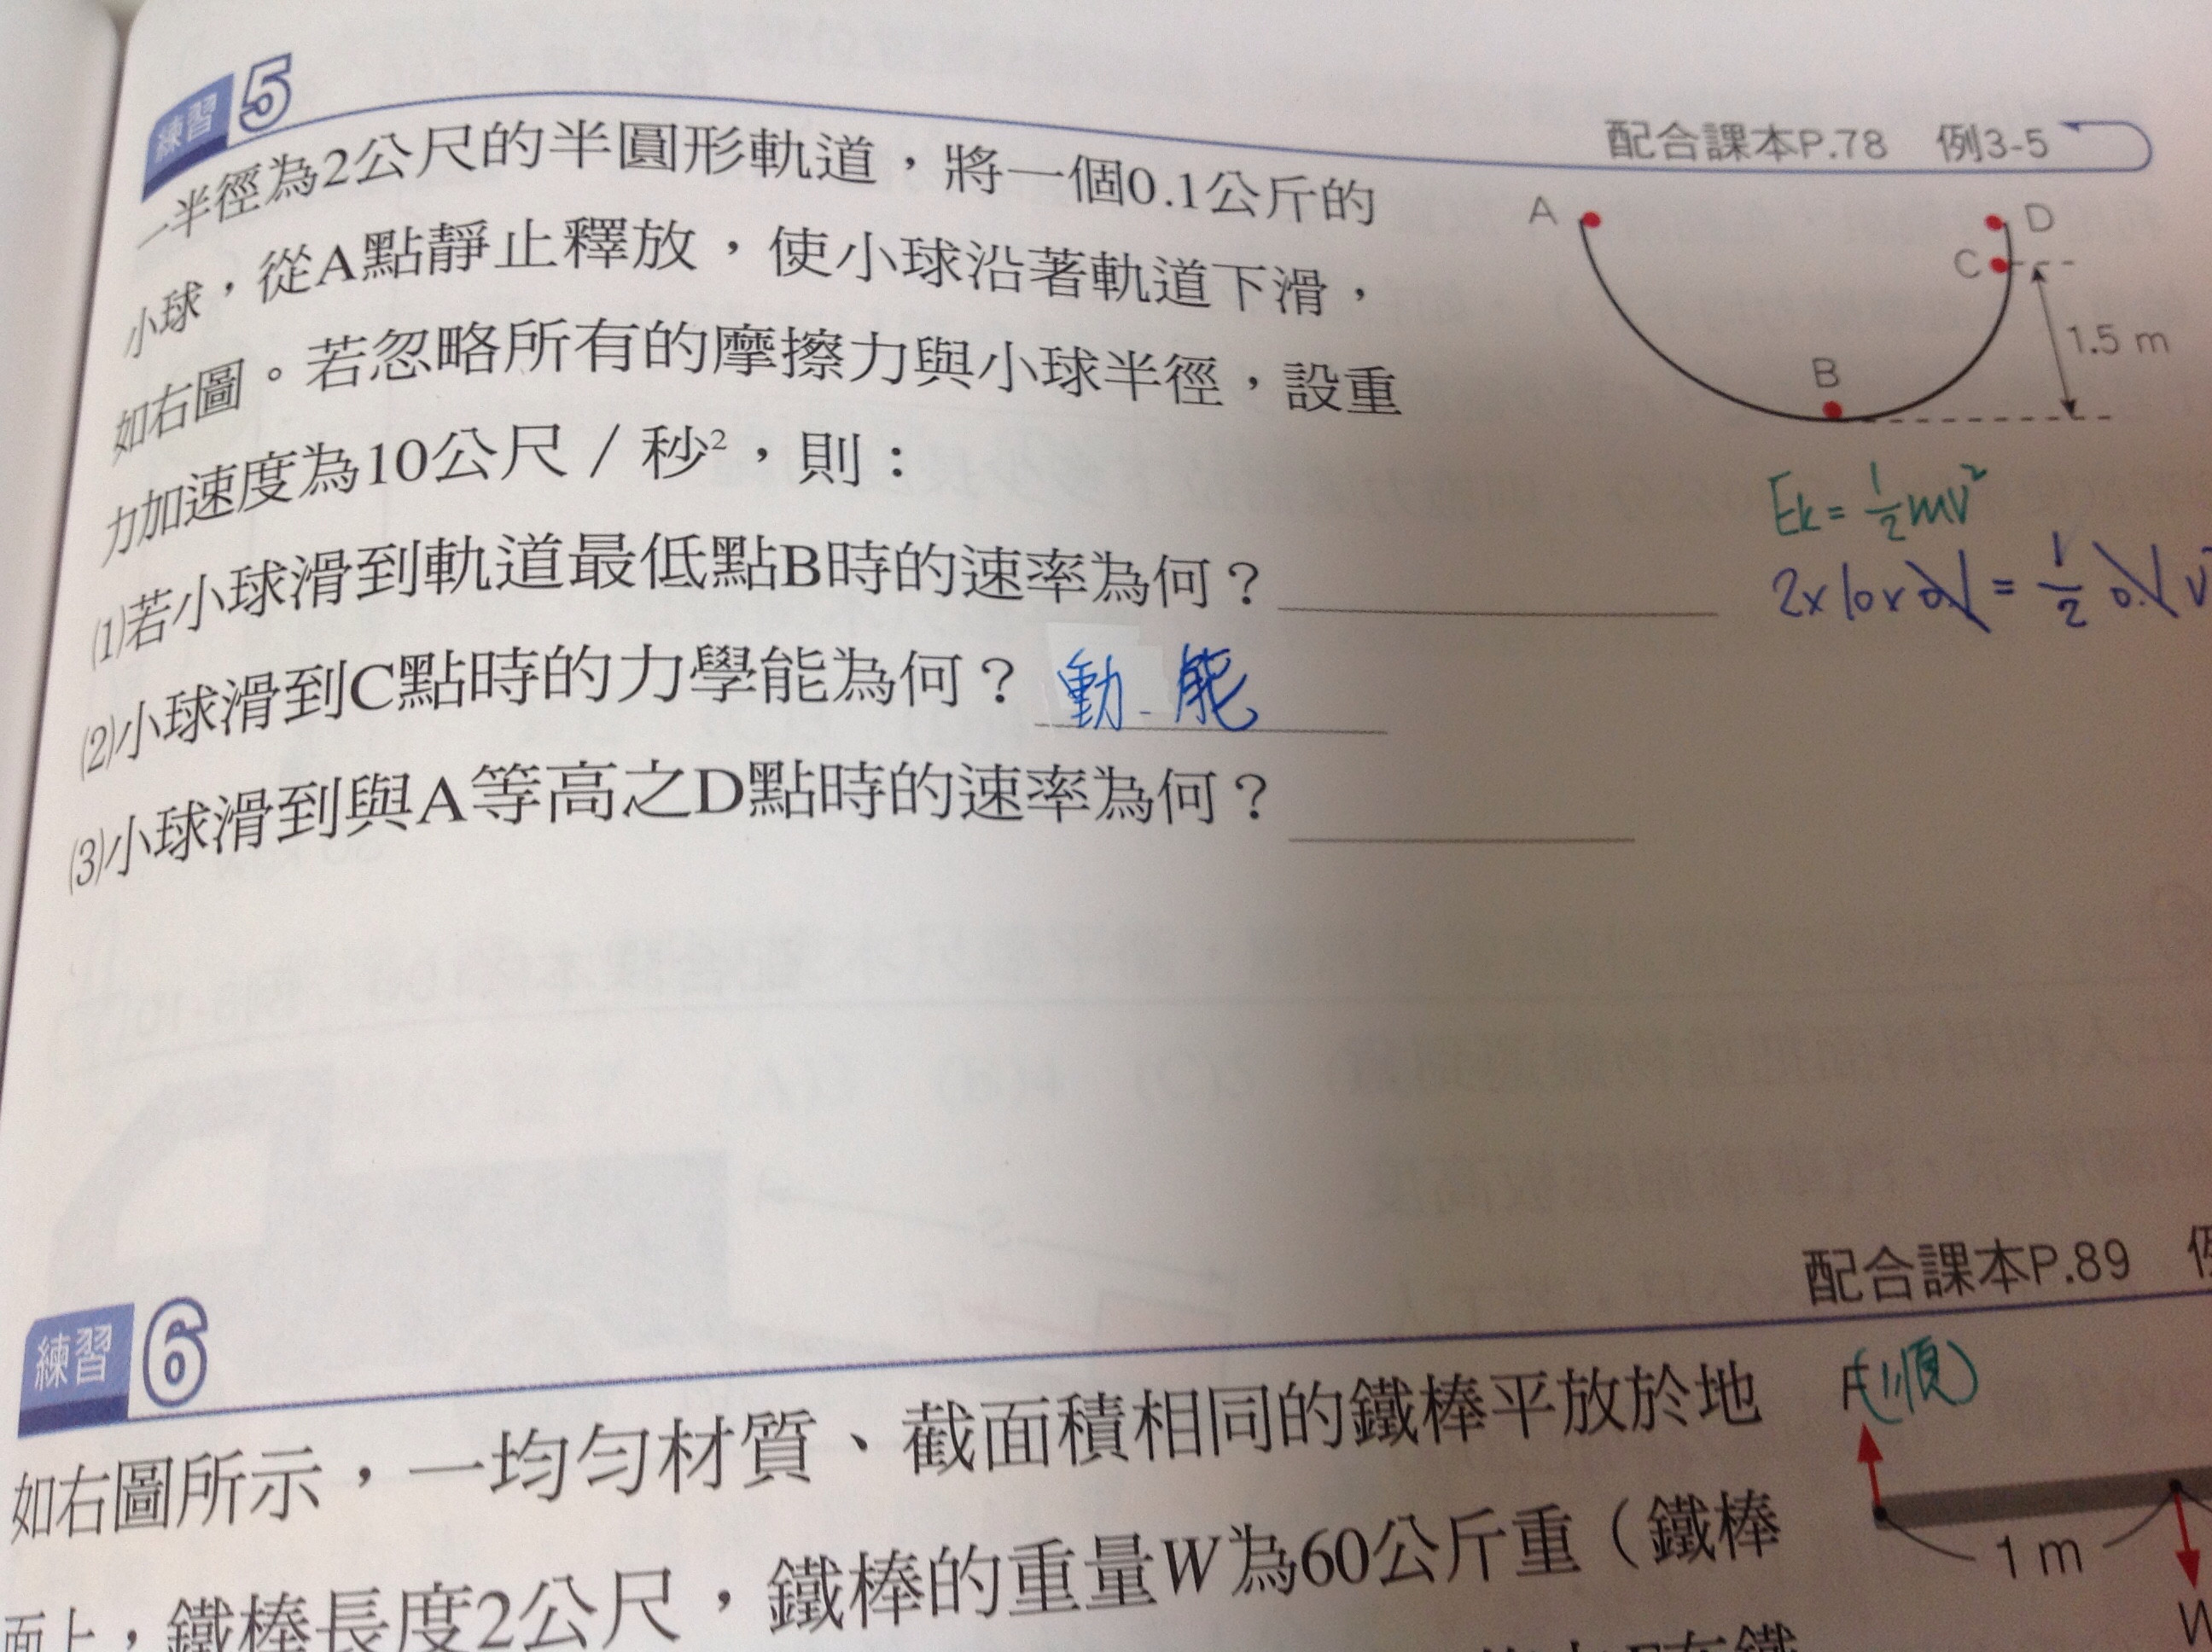 練習5
配合課本P.78 例3-5
一半徑為2公尺的半圓形軌道，將一個0.1公斤的
小球，從A點靜止釋放，使小球沿著軌道下滑，
如右圖。若忽略所有的摩擦力與小球半徑，設重
力加速度為10公尺／秒²，則：
A
D
C
1.5 m
B
Ek = 1/2 mv²
2×10×0.1 = 1/2 0.1 v²
(1)若小球滑到軌道最低點B時的速率為何？
(2)小球滑到C點時的力學能為何？ 動 能
(3)小球滑到與A等高之D點時的速率為何？
配合課本P.89
練習6
如右圖所示，一均勻材質、截面積相同的鐵棒平放於地
面上，鐵棒長度2公尺，鐵棒的重量W為60公斤重（鐵棒
F(順)
1 m
W